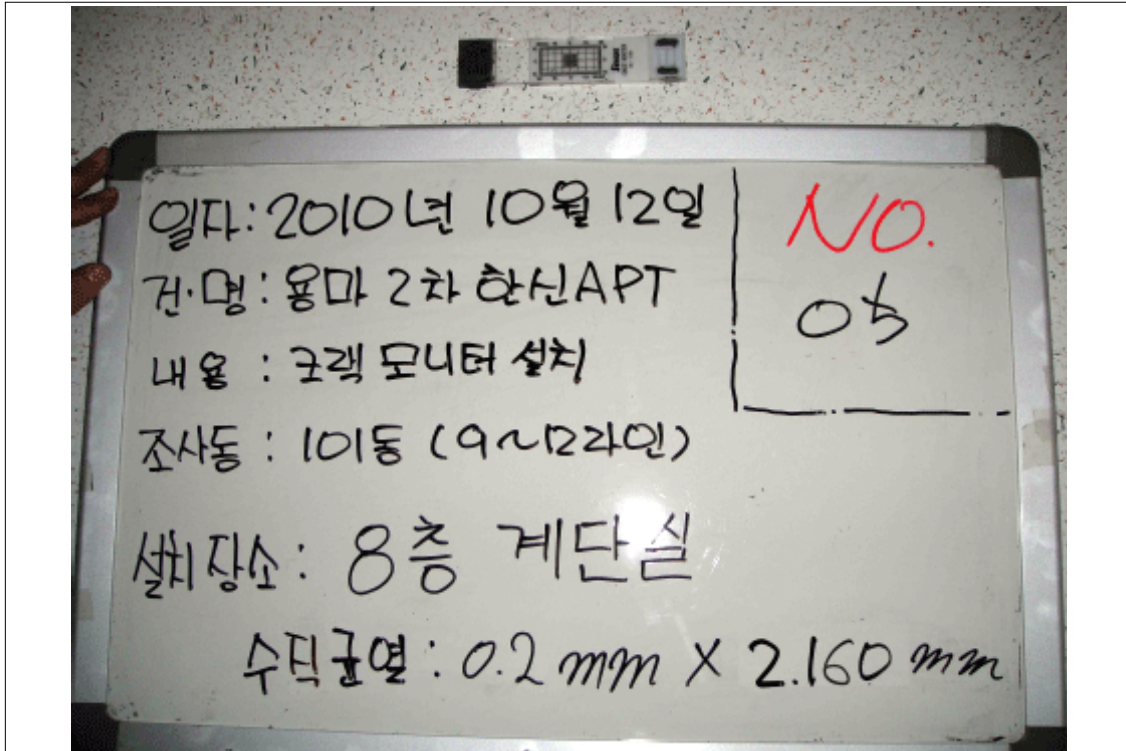 일자: 2010년 10월 12일
건·명: 용마 2차 한신APT
내용 : 크랙 모니터 설치
조사동 : 101동 (9~12라인)
설치장소: 8층 계단실
수직균열 : 0.2 mm X 2.160 mm
NO.
05